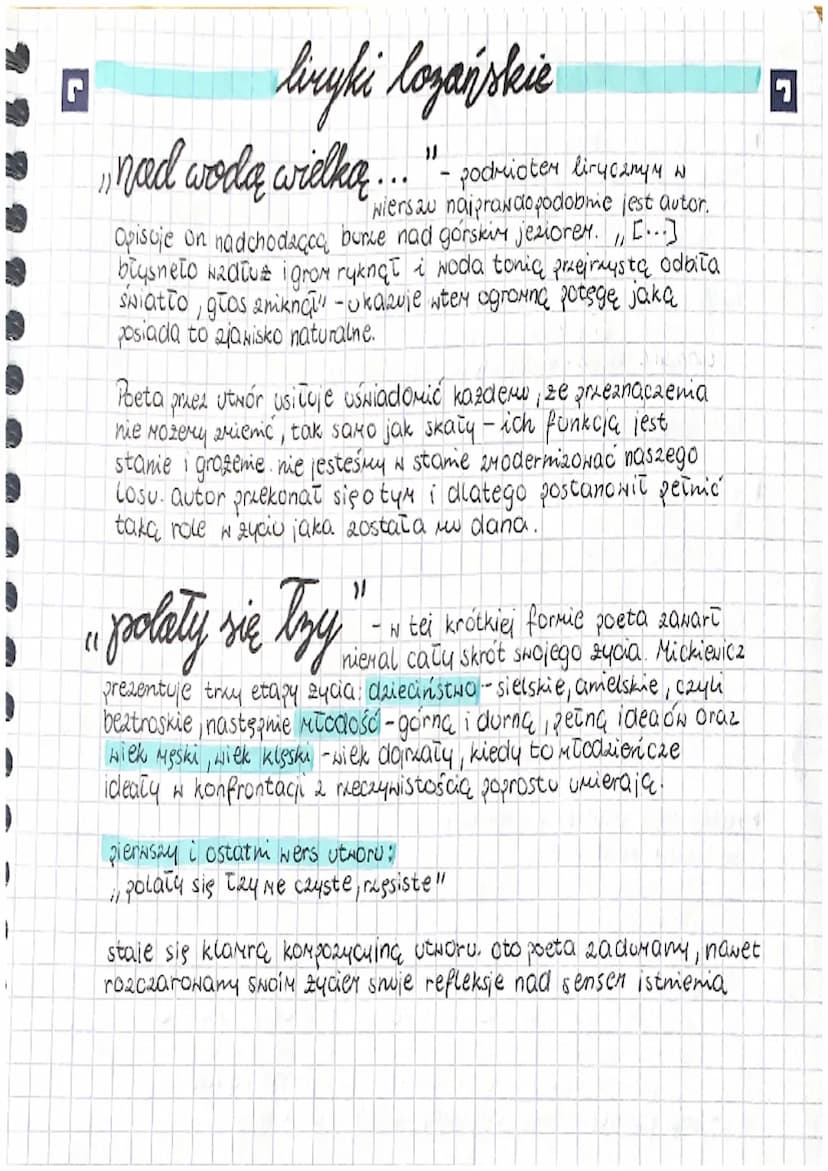 liryki lozańskie
„nad wodą wielką..." - podmiotem lirycznym w
wierszu najprawdopodobnie jest autor.
Opisuje on nadchodzącą burze nad górskim jeziorem. „[...]
błysneło wzdłuż i grom ryknął i woda tonią przejrzystą odbiła
światło, głos zniknął" - ukazuje wtem ogromną potęgę jaką
posiada to zjawisko naturalne.
Poeta przez utwór usiłuje uświadomić każdemu, że przeznaczenia
nie możemy zmienić, tak samo jak skały - ich funkcją jest
stanie i grożenie. nie jesteśmy w stanie zmodernizować naszego
losu. autor przekonał się o tym i dlatego postanowił pełnić
taką role w życiu jaka została mu dana.
„polały się łzy" - w tej krótkiej formie poeta zawarł
niemal cały skrót swojego życia. Mickiewicz
prezentuje trzy etapy życia: dzieciństwo - sielskie, anielskie, czyli
beztroskie, następnie młodość - górną i durną, pełną ideaów oraz
wiek męski, wiek klęski - wiek dojrzały, kiedy to młodzieńcze
ideały w konfrontacji z rzeczywistością poprostu umierają.
pierwszy i ostatni wers utworu:
„polały się łzy me czyste, rzęsiste"
staje się klamrą kompozycyjną utworu. oto poeta zadumany, nawet
rozczarowany swoim życiem snuje refleksje nad sensem istnienia